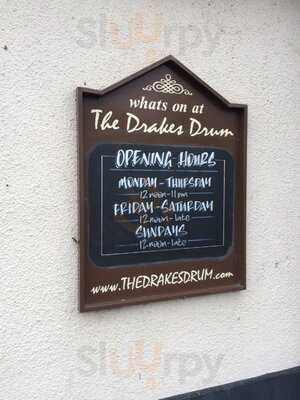 slurrpy
whats on at
The Drakes Drum
OPENING HOURS
MONDAY - THURSDAY
12noon-11pm
FRIDAY - SATURDAY
12noon-late
SUNDAYS
12noon-late
www.THEDRAKESDRUM.com
slurrpy